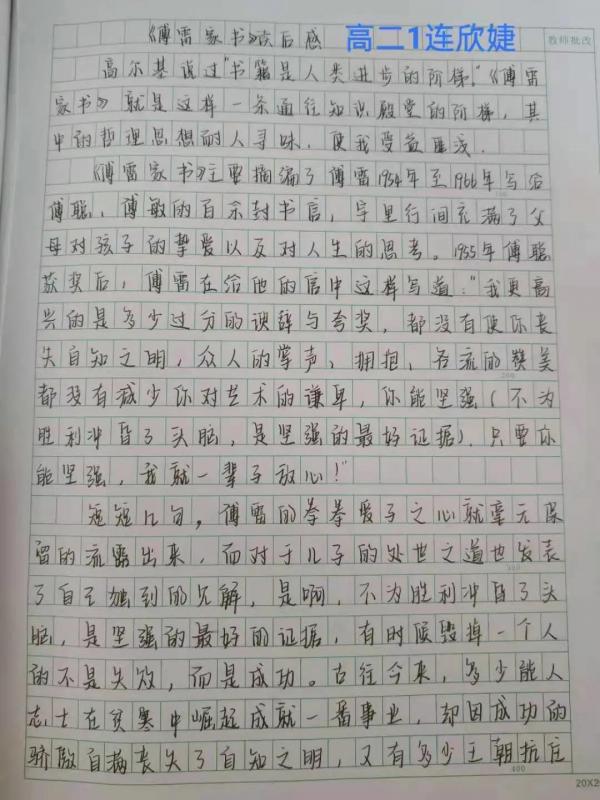 《傅雷家书》读后感 高二1连欣婕 教师批改
高尔基说过"书籍是人类进步的阶梯。"《傅雷
家书》就是这样一条通往知识殿堂的阶梯，其
中的哲理思想耐人寻味，使我受益匪浅。
《傅雷家书》主要摘编了傅雷1954年至1966年写给
傅聪、傅敏的百余封书信，字里行间充满了父
母对孩子的挚爱以及对人生的思考。1955年傅聪
获奖后，傅雷在给他的信中这样写道："我更高
兴的是多少过分的谀辞与夸奖，都没有使你丧
失自知之明，众人的掌声、拥抱，名流的赞美
都没有减少你对艺术的谦卑，你能坚强（不为
胜利冲昏了头脑，是坚强的最好证据）.只要你
能坚强，我就一辈子放心！"
短短几句，傅雷的拳拳爱子之心就毫无保
留的流露出来，而对于儿子的处世之道也发表
了自己独到的见解，是啊，不为胜利冲昏了头
脑，是坚强的最好的证据，有时候毁掉一个人
的不是失败，而是成功。古往今来，多少能人
志士在贫寒中崛起成就一番事业，却因成功的
骄傲自满丧失了自知之明，又有多少王朝抗住
400
20X2